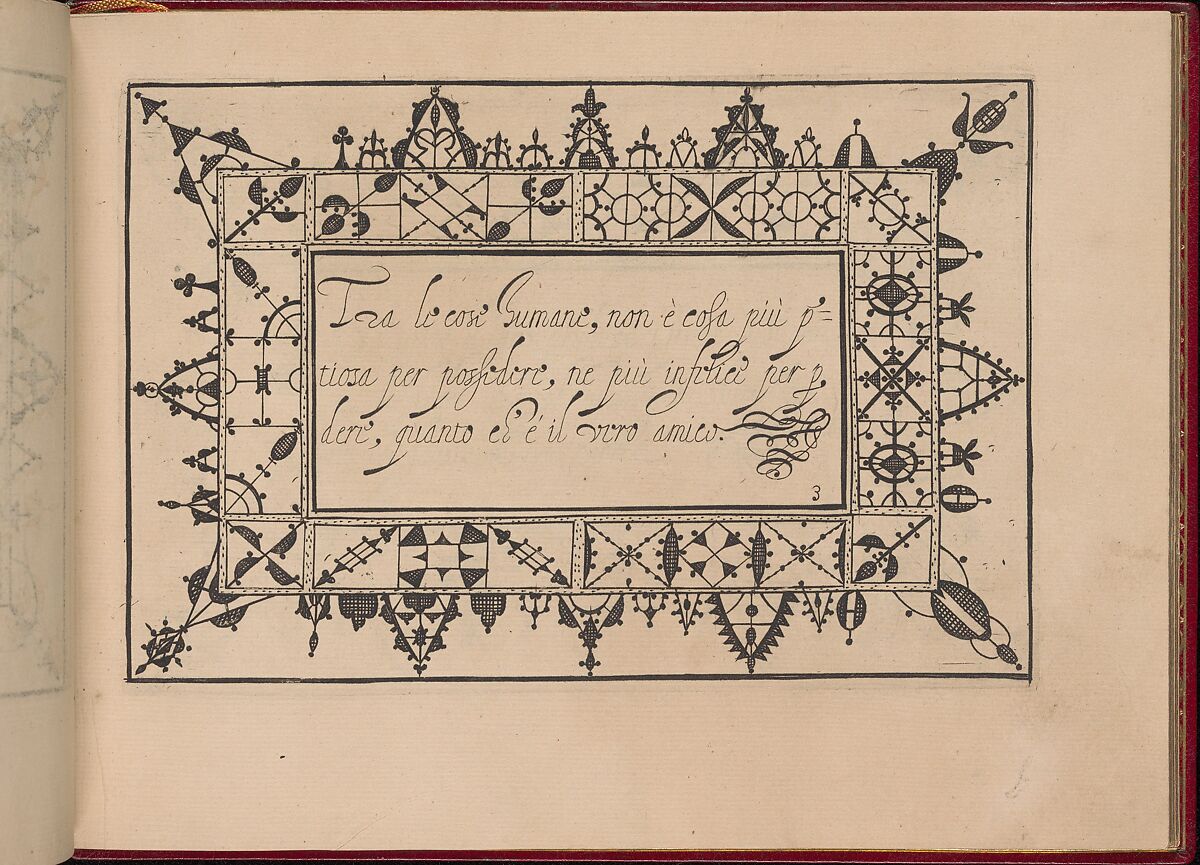 Tra le cose humane, non è cosa più p̱=
tiosa per possedere, ne più infelice per ꝑ
dere, quanto ch'é il vero amico.
3